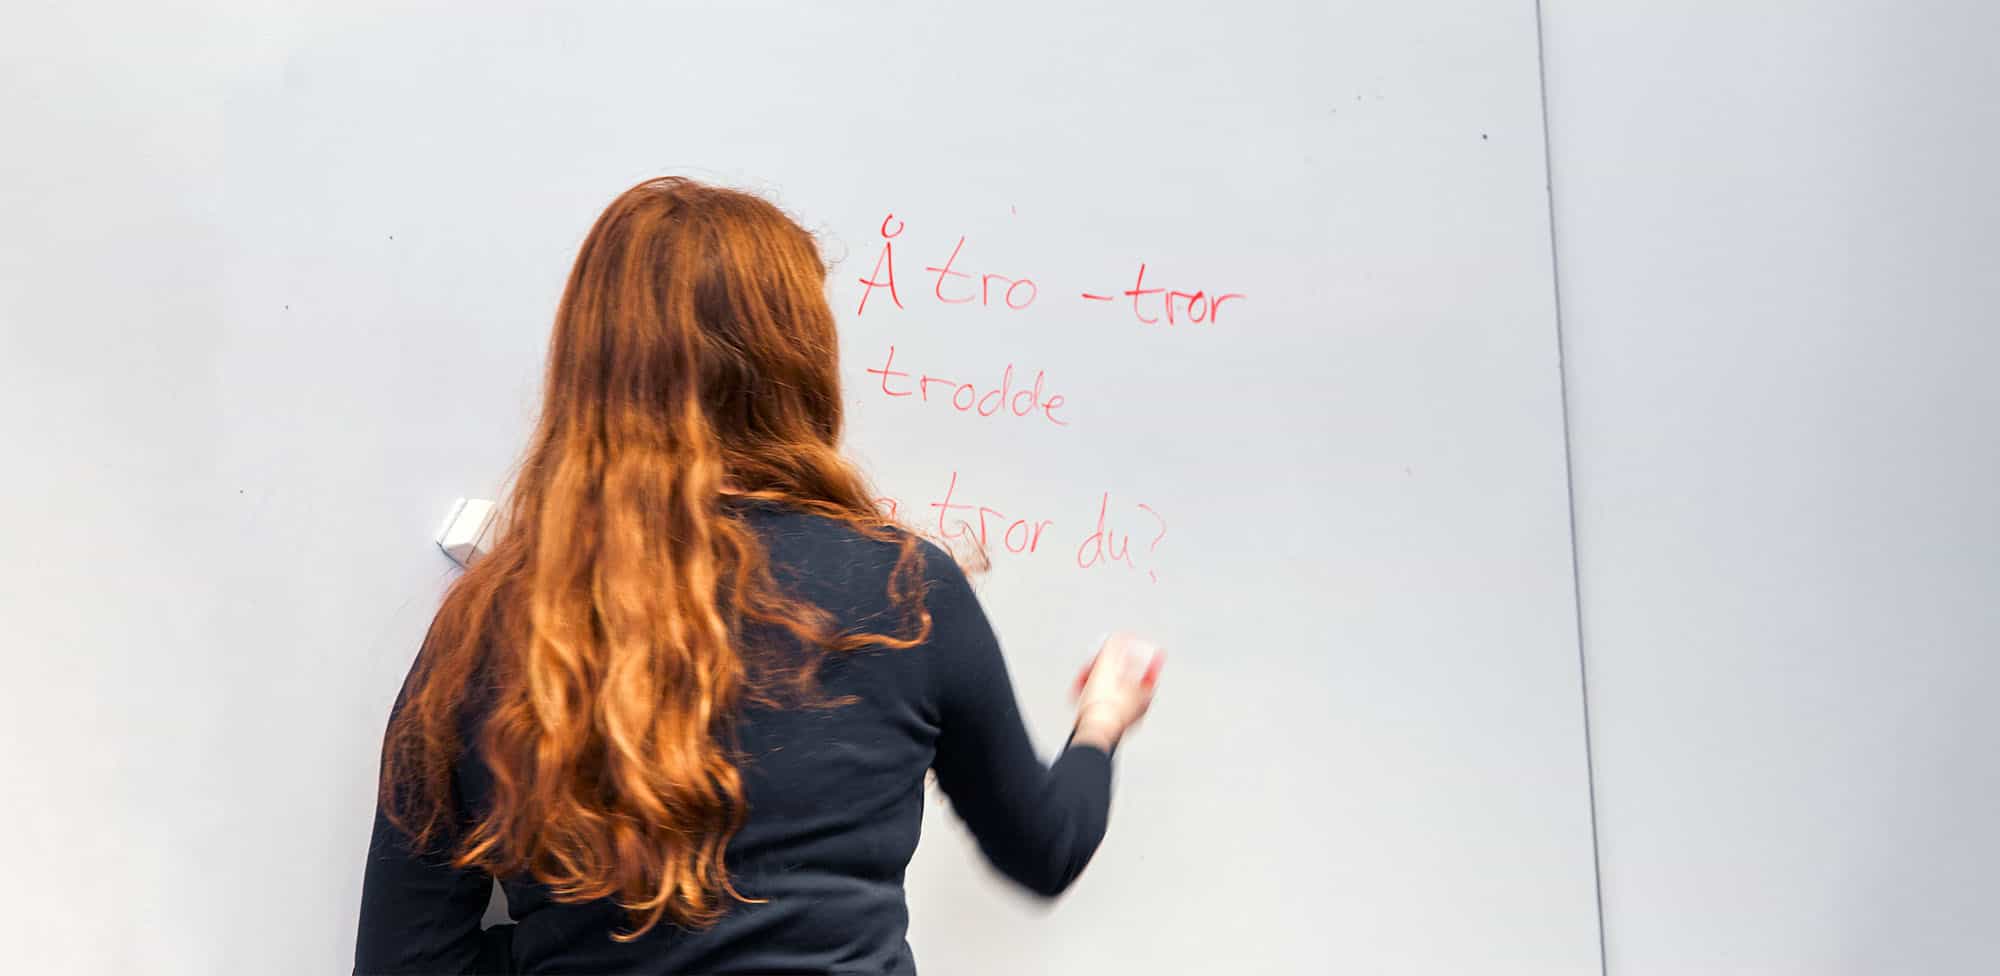 Å tro - tror
trodde
tror du?